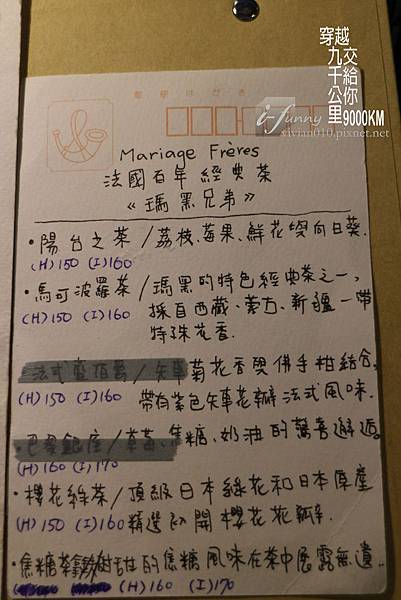 穿越九千公里
交給你
9000KM
i-funny
vivian010.pixnet.net
郵便はがき
Mariage Frères
法國百年經典茶
《瑪黑兄弟》
・陽台之茶/荔枝、莓果、鮮花與向日葵.
(H)150 (I)160
・馬可波羅茶/瑪黑的特色經典茶之一,
採自西藏、蒙古、新疆一帶
特殊花香.
・法式藍伯爵/矢車菊花香與佛手柑結合,
(H)150 (I)160 帶有紫色矢車花瓣法式風味.
・巴黎銀座/草莓、焦糖、奶油的驚喜邂逅。
(H)160 (I)170
・櫻花綠茶/頂級日本綠花和日本原產
(H)150 (I)160 精選初開櫻花花瓣.
・焦糖茶 甜的焦糖風味在茶中展露無遺..
(H)160 (I)170